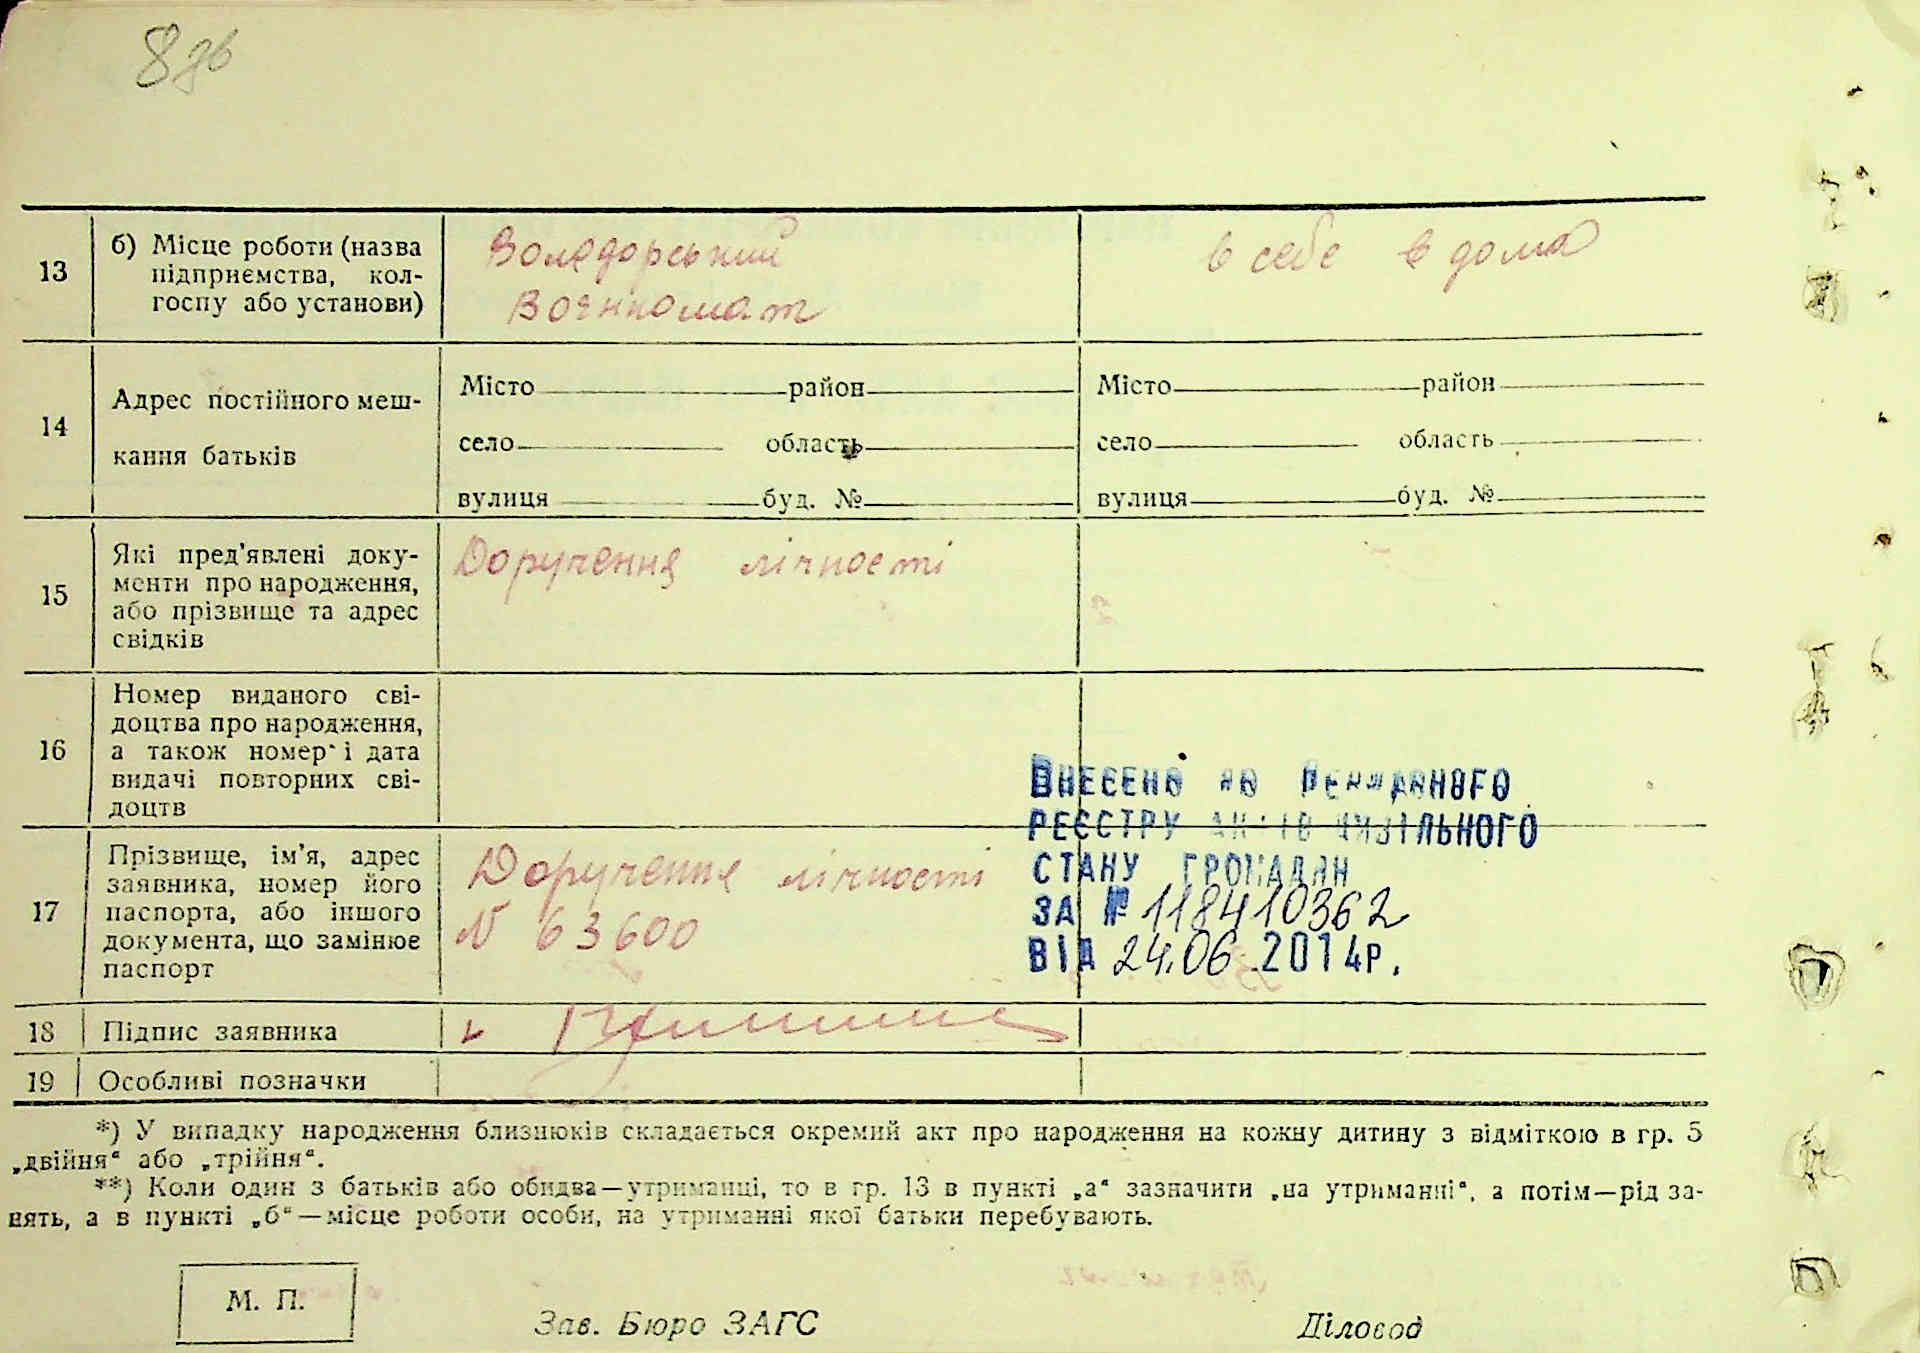 8 зв
13
б) Місце роботи (назва
підприємства, кол-
госпу або установи)
Володорський
Воєнкомат
в себе в дома
14
Адрес постійного меш-
кання батьків
Місто район
село область
вулиця буд. №
Місто район
село область
вулиця буд. №
15
Які пред'явлені доку-
менти про народження,
або прізвище та адрес
свідків
Доручення лічності
16
Номер виданого сві-
доцтва про народження,
а також номер і дата
видачі повторних сві-
доцтв
17
Прізвище, ім'я, адрес
заявника, номер його
паспорта, або іншого
документа, що замінює
паспорт
Доручення лічності
N 63600
ВНЕСЕНО ДО ДЕРЖАВНОГО
РЕЄСТРУ АКТІВ ЦИВІЛЬНОГО
СТАНУ ГРОМАДЯН
ЗА № 118410362
ВІД 24.06.2014р.
18
Підпис заявника
19
Особливі позначки
*) У випадку народження близнюків складається окремий акт про народження на кожну дитину з відміткою в гр. 5
„двійня“ або „трійня“.
**) Коли один з батьків або обидва—утриманці, то в гр. 13 в пункті „а“ зазначити „на утриманні“, а потім—рід за-
нять, а в пункті „б“—місце роботи особи, на утриманні якої батьки перебувають.
М. П.
Зав. Бюро ЗАГС
Діловод